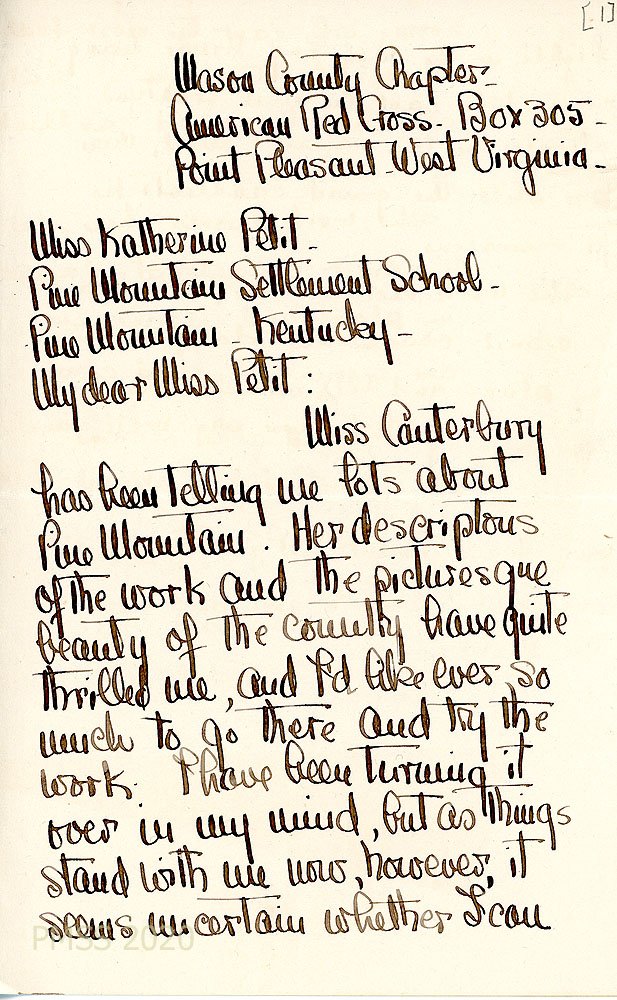 [1]
Mason County Chapter-
American Red Cross- Box 305-
Point Pleasant-West Virginia-
Miss Katherine Petit-
Pine Mountain Settlement School-
Pine Mountain - Kentucky-
My dear Miss Petit:
Miss Canterbury
has been telling me lots about
Pine Mountain. Her descriptons
of the work and the picturesque
beauty of the country have quite
thrilled me, and I'd like ever so
much to go there and try the
work. I have been turning it
over in my mind, but as things
stand with me now, however, it
seems uncertain whether I can
PMSS 2020